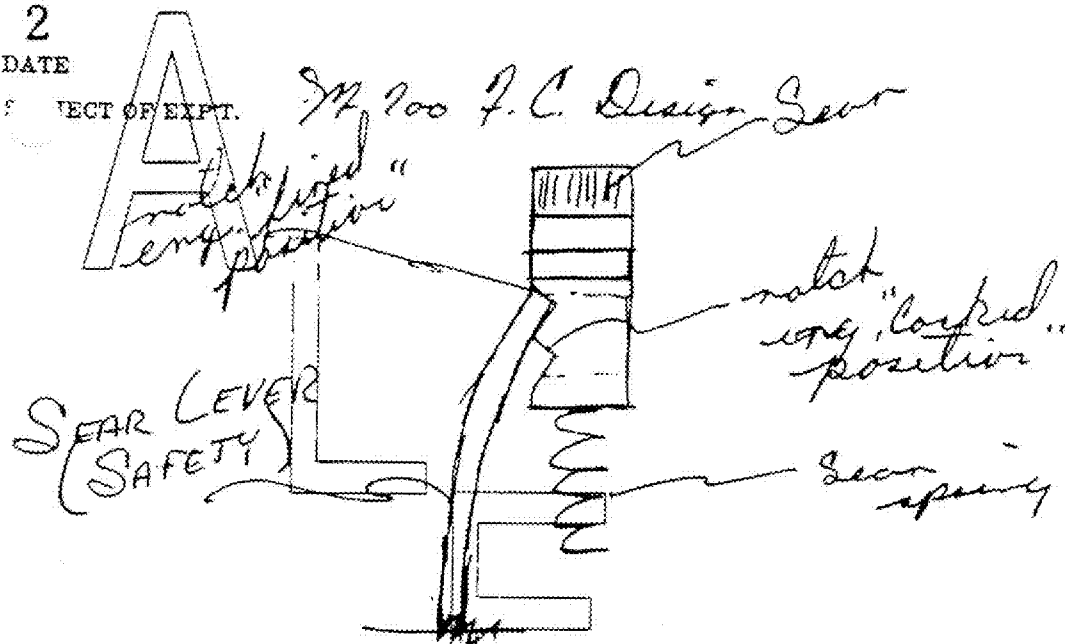 2
DATE
JECT OF EXP'T.
M 700 F.C. Design Sear
notch
eng. "fired
position"
notch
eng. "Cocked"
position
SEAR LEVER
SAFETY
Sear
spring
A
L
E